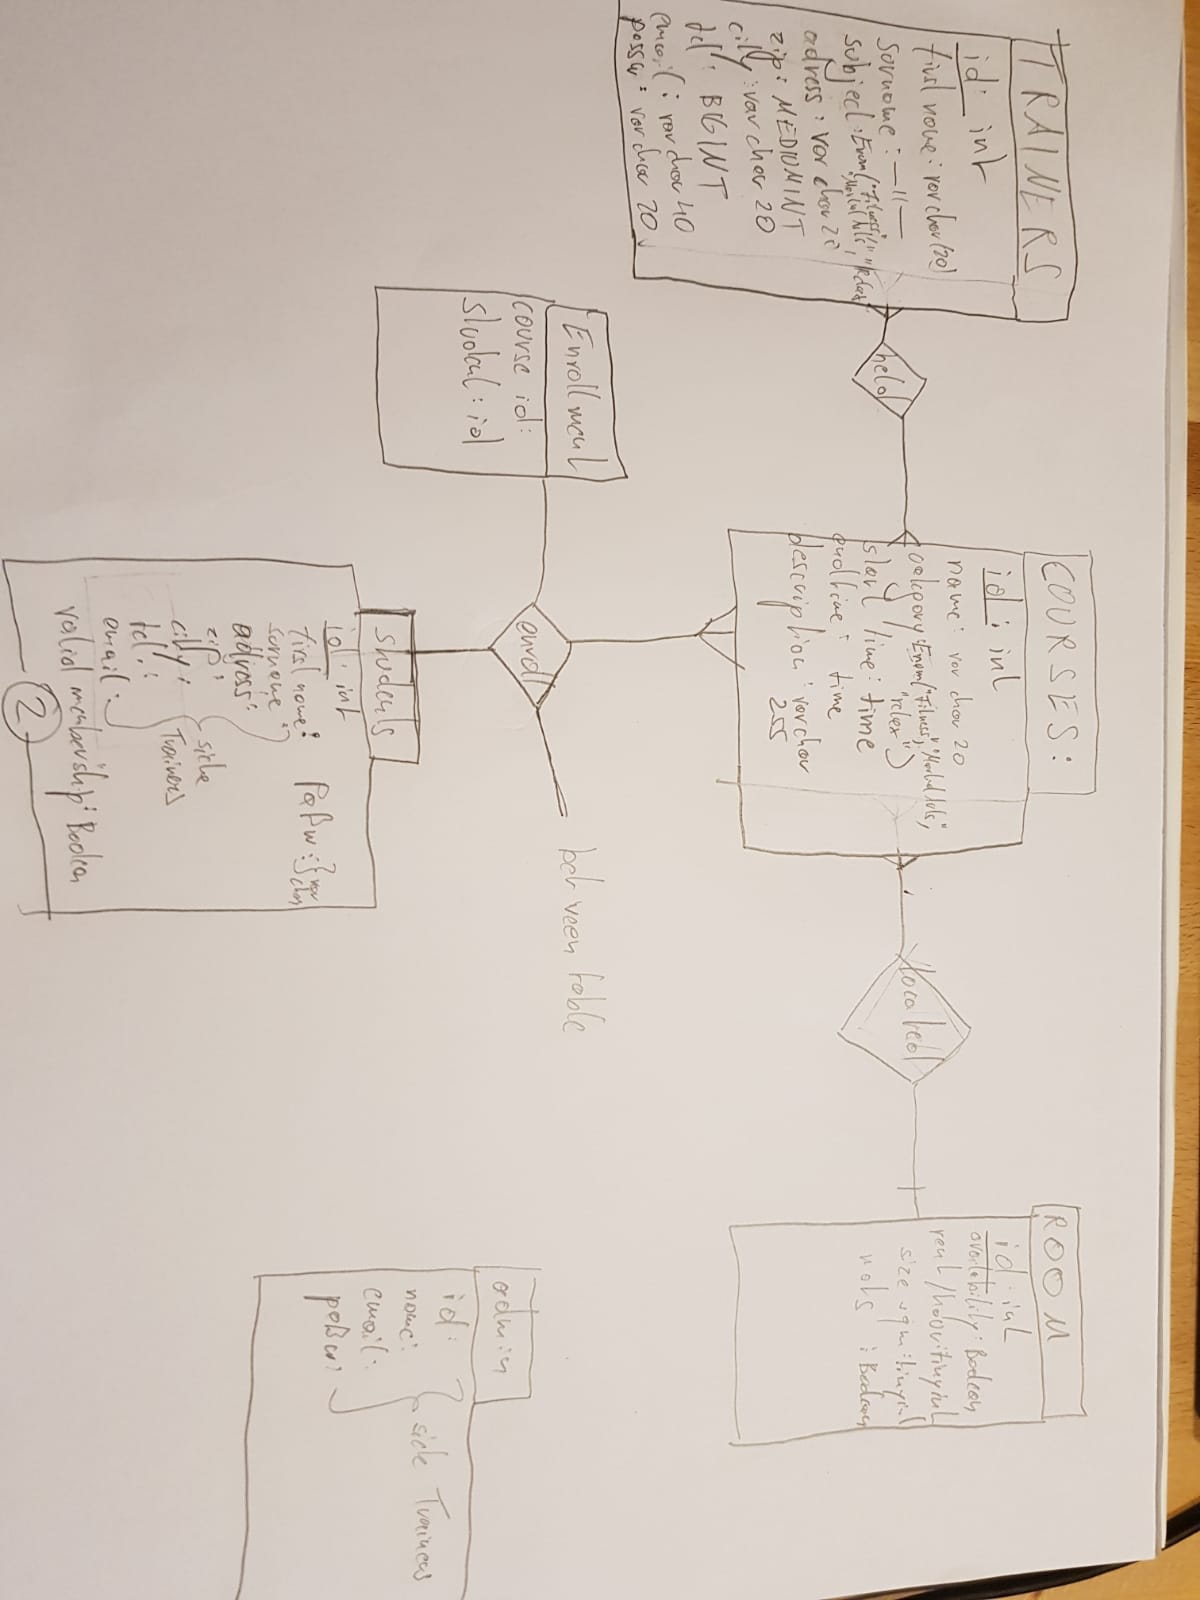 TRAINERS
id: int
first name: varchar(20)
surname: —11—
subject: Enum("Fitness",
"Martial Arts",
adress: var char 20
zip: MEDIUMINT
city: var char 20
tel: BIGINT
email: var char 40
passw: var char 20
held
COURSES:
id: int
name: var char 20
category: Enum("Fitness", "Martial Arts",
"relax")
start time: time
endtime: time
description: varchar
255
located
ROOM
id: int
availability: Boolean
rent/hour: tinyint
size sqm: tinyint
mats : Boolean
Enrollment
course id:
student: id
enroll
between table
students
id: int
first name:
surname:
adress:
zip:
city:
tel.:
email:
siehe
Trainers
paßw: } var
char
valid membership: Boolean
2
admin
id:
name:
email:
paßw:
siehe Trainers